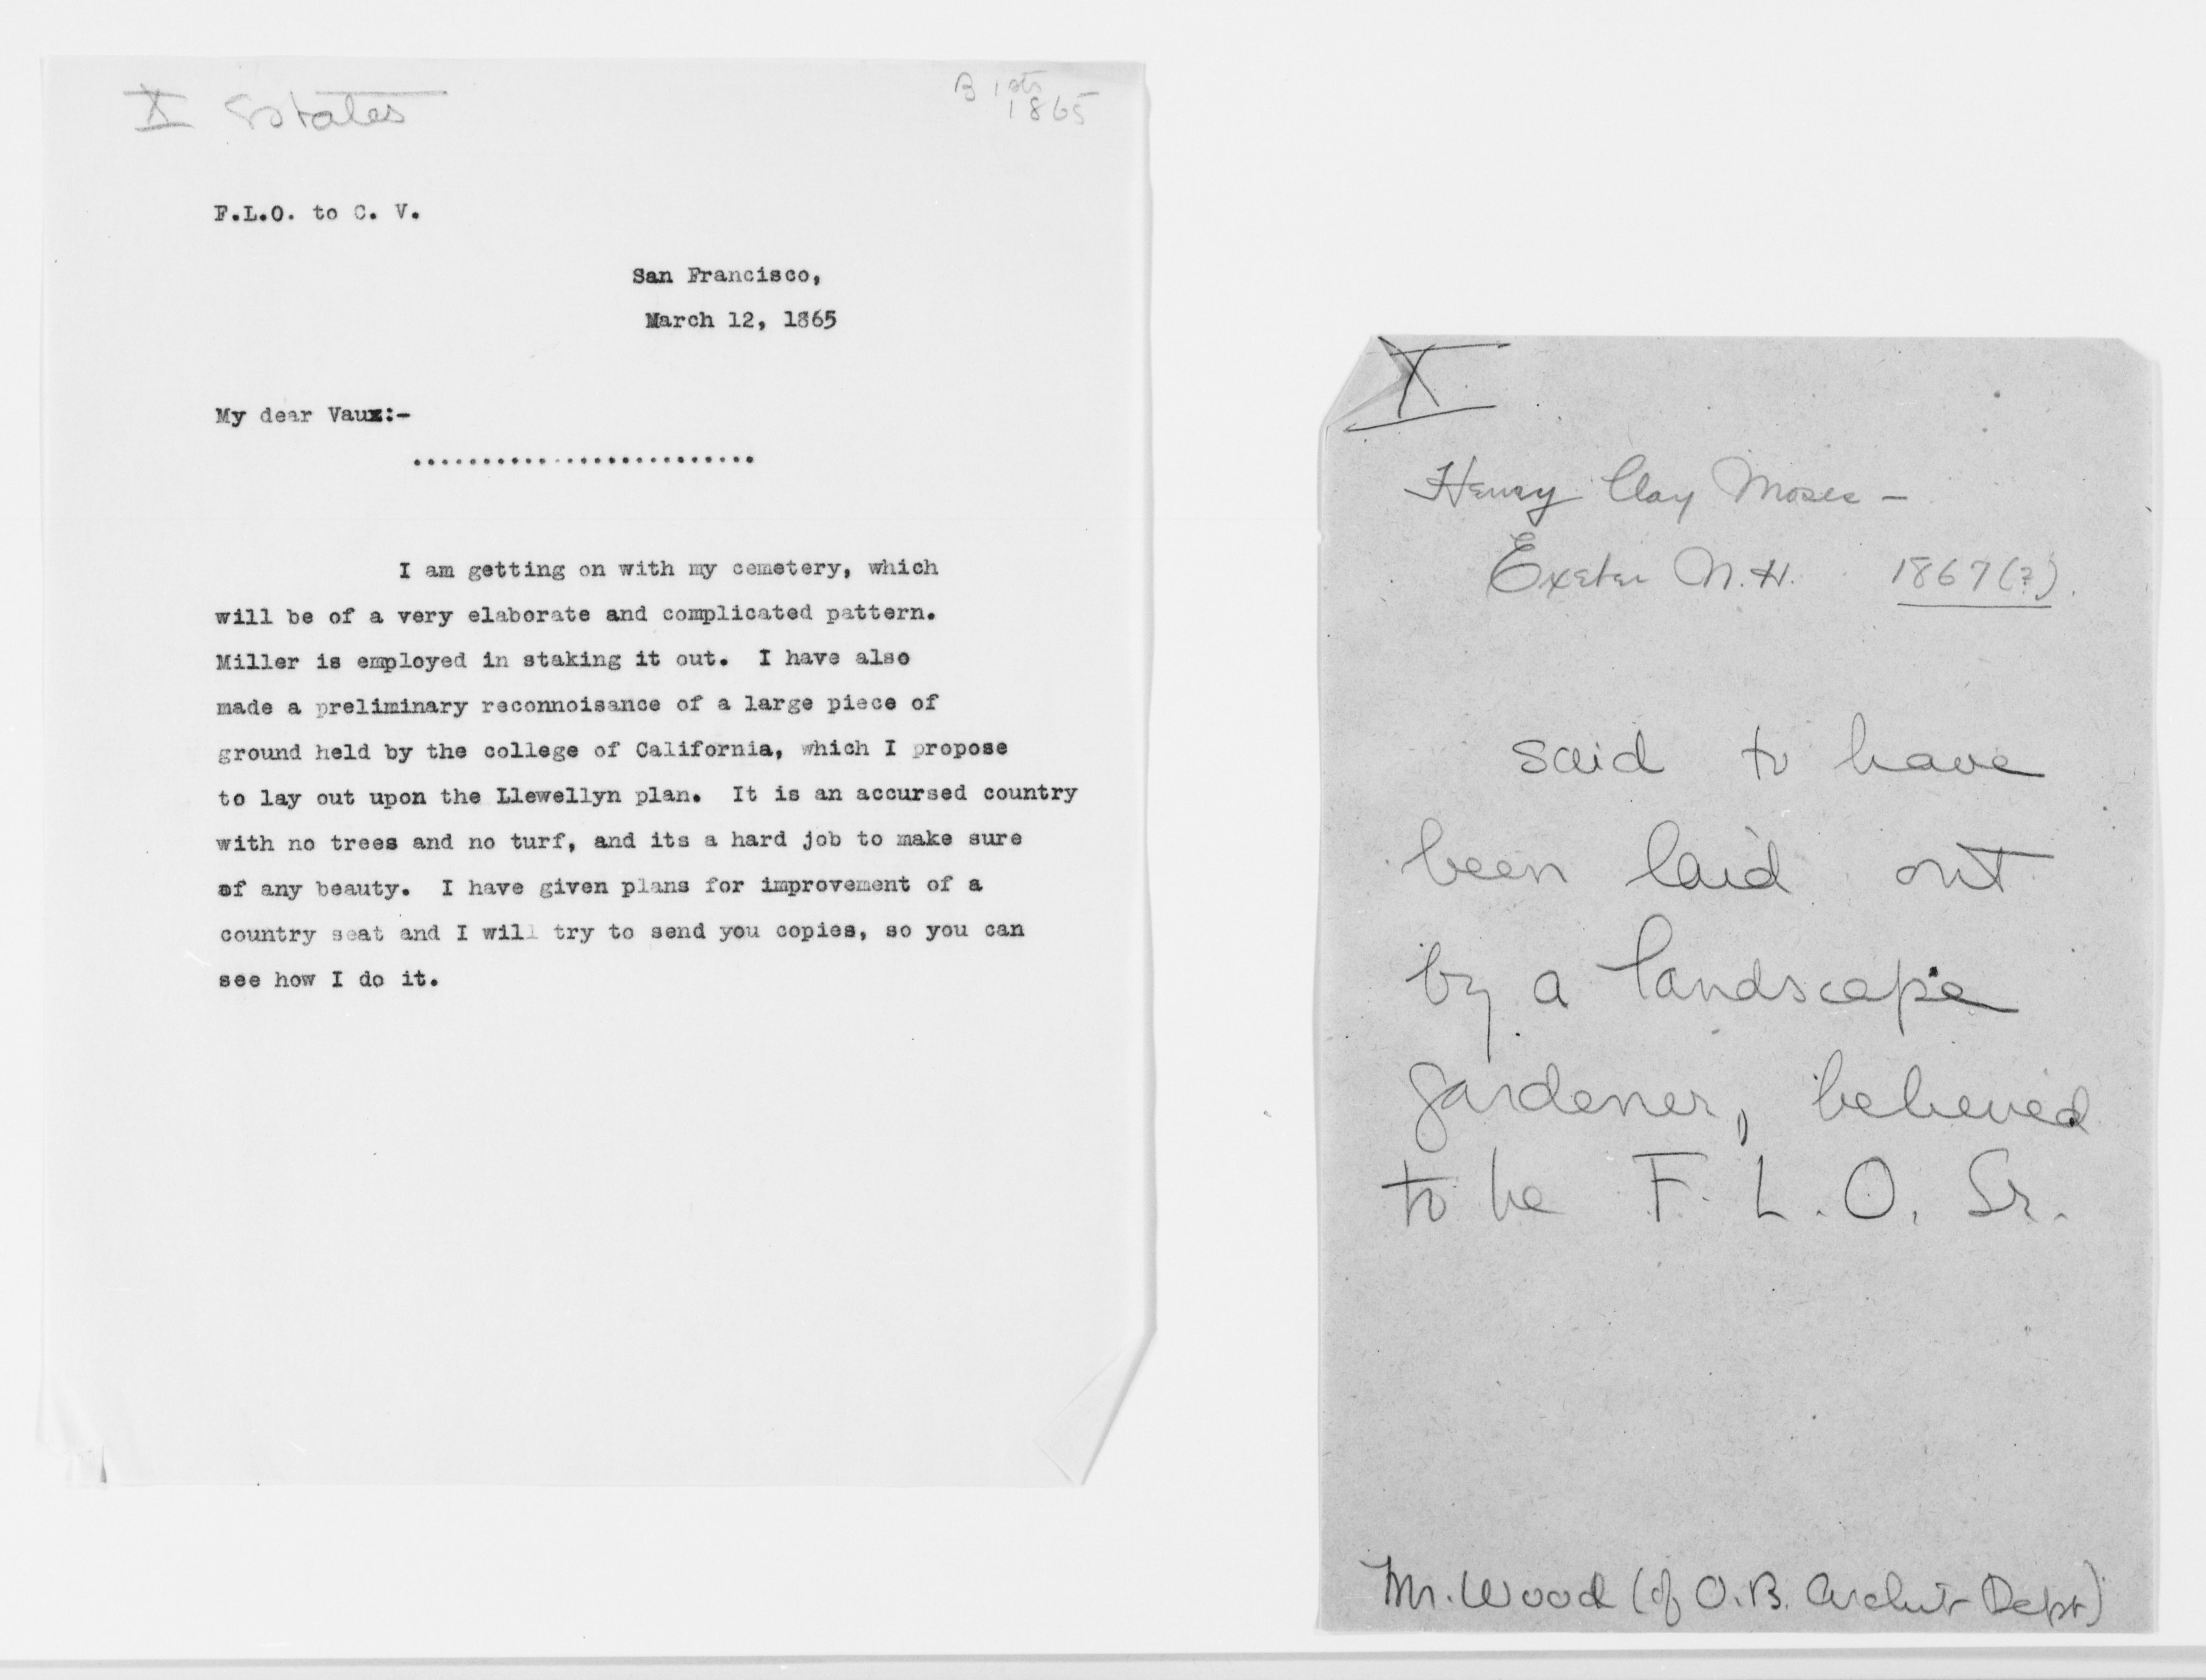 X Estates
1865
F.L.O. to C. V.
San Francisco,
March 12, 1865
My dear Vaux:-
.........................
I am getting on with my cemetery, which
will be of a very elaborate and complicated pattern.
Miller is employed in staking it out. I have also
made a preliminary reconnoisance of a large piece of
ground held by the college of California, which I propose
to lay out upon the Llewellyn plan. It is an accursed country
with no trees and no turf, and its a hard job to make sure
of any beauty. I have given plans for improvement of a
country seat and I will try to send you copies, so you can
see how I do it.
X
Henry Clay Moses -
Exeter N.H. 1867(?)
said to have
been laid out
by a landscape
gardener, believed
to be F. L. O. Sr.
Mr. Wood (of O.B. Archit Dept)